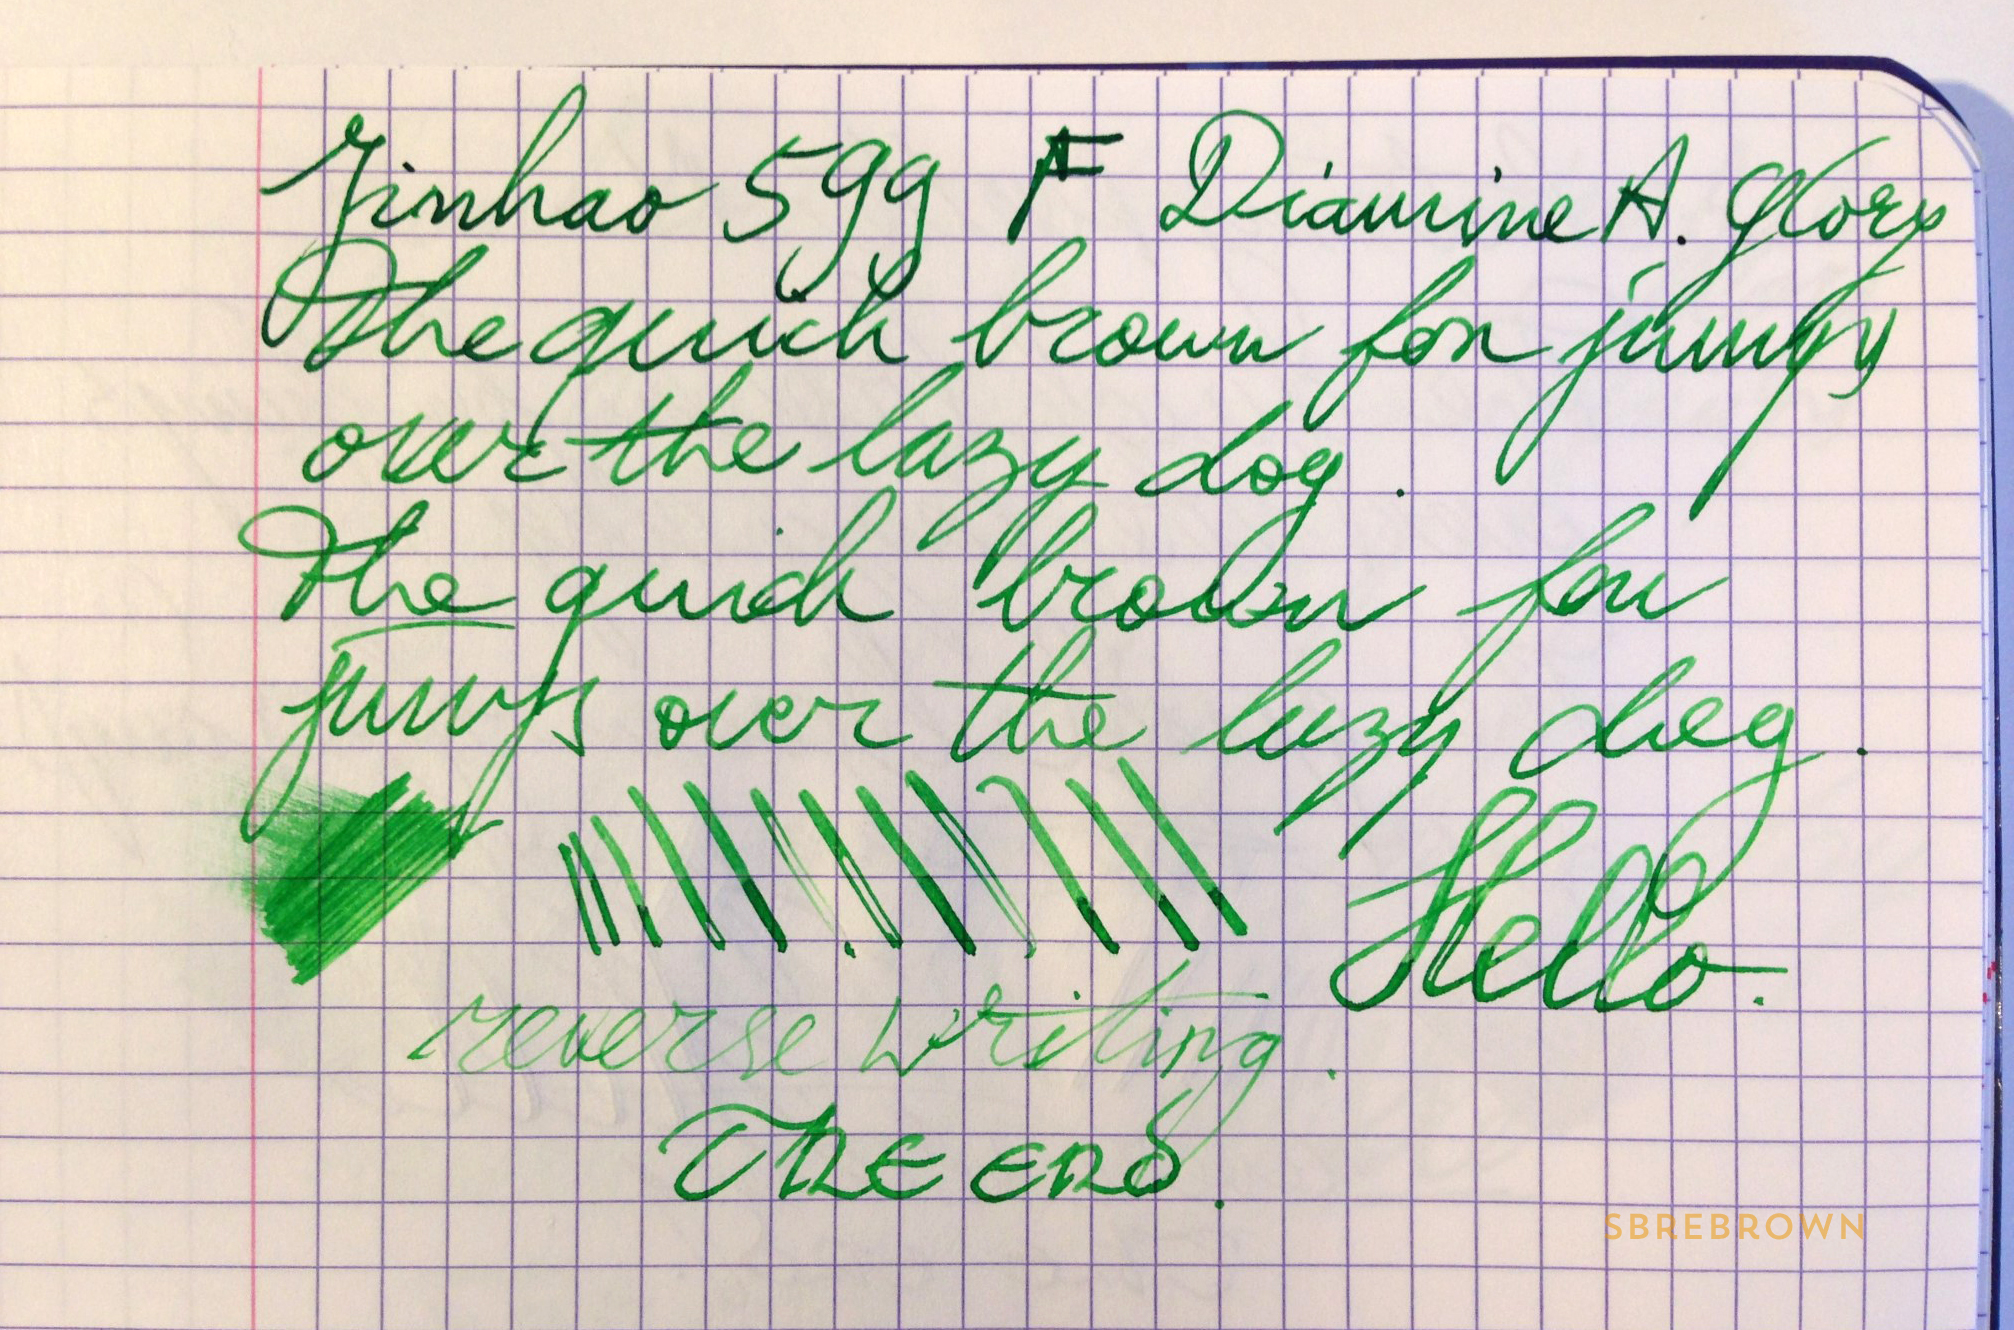 Jinhao 599 F Diamine A. Glory
The quick brown fox jumps
over the lazy dog.
The quick brown fox
jumps over the lazy dog.
Hello.
reverse writing.
THE END.
SBREBROWN